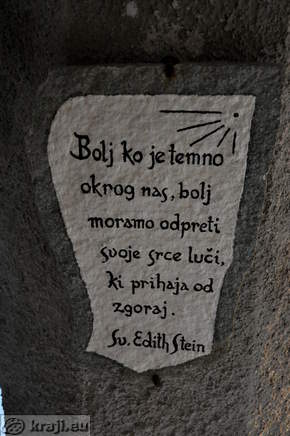 Bolj ko je temno
okrog nas, bolj
moramo odpreti
svoje srce luči,
ki prihaja od
zgoraj.
Sv. Edith Stein
kraji.eu